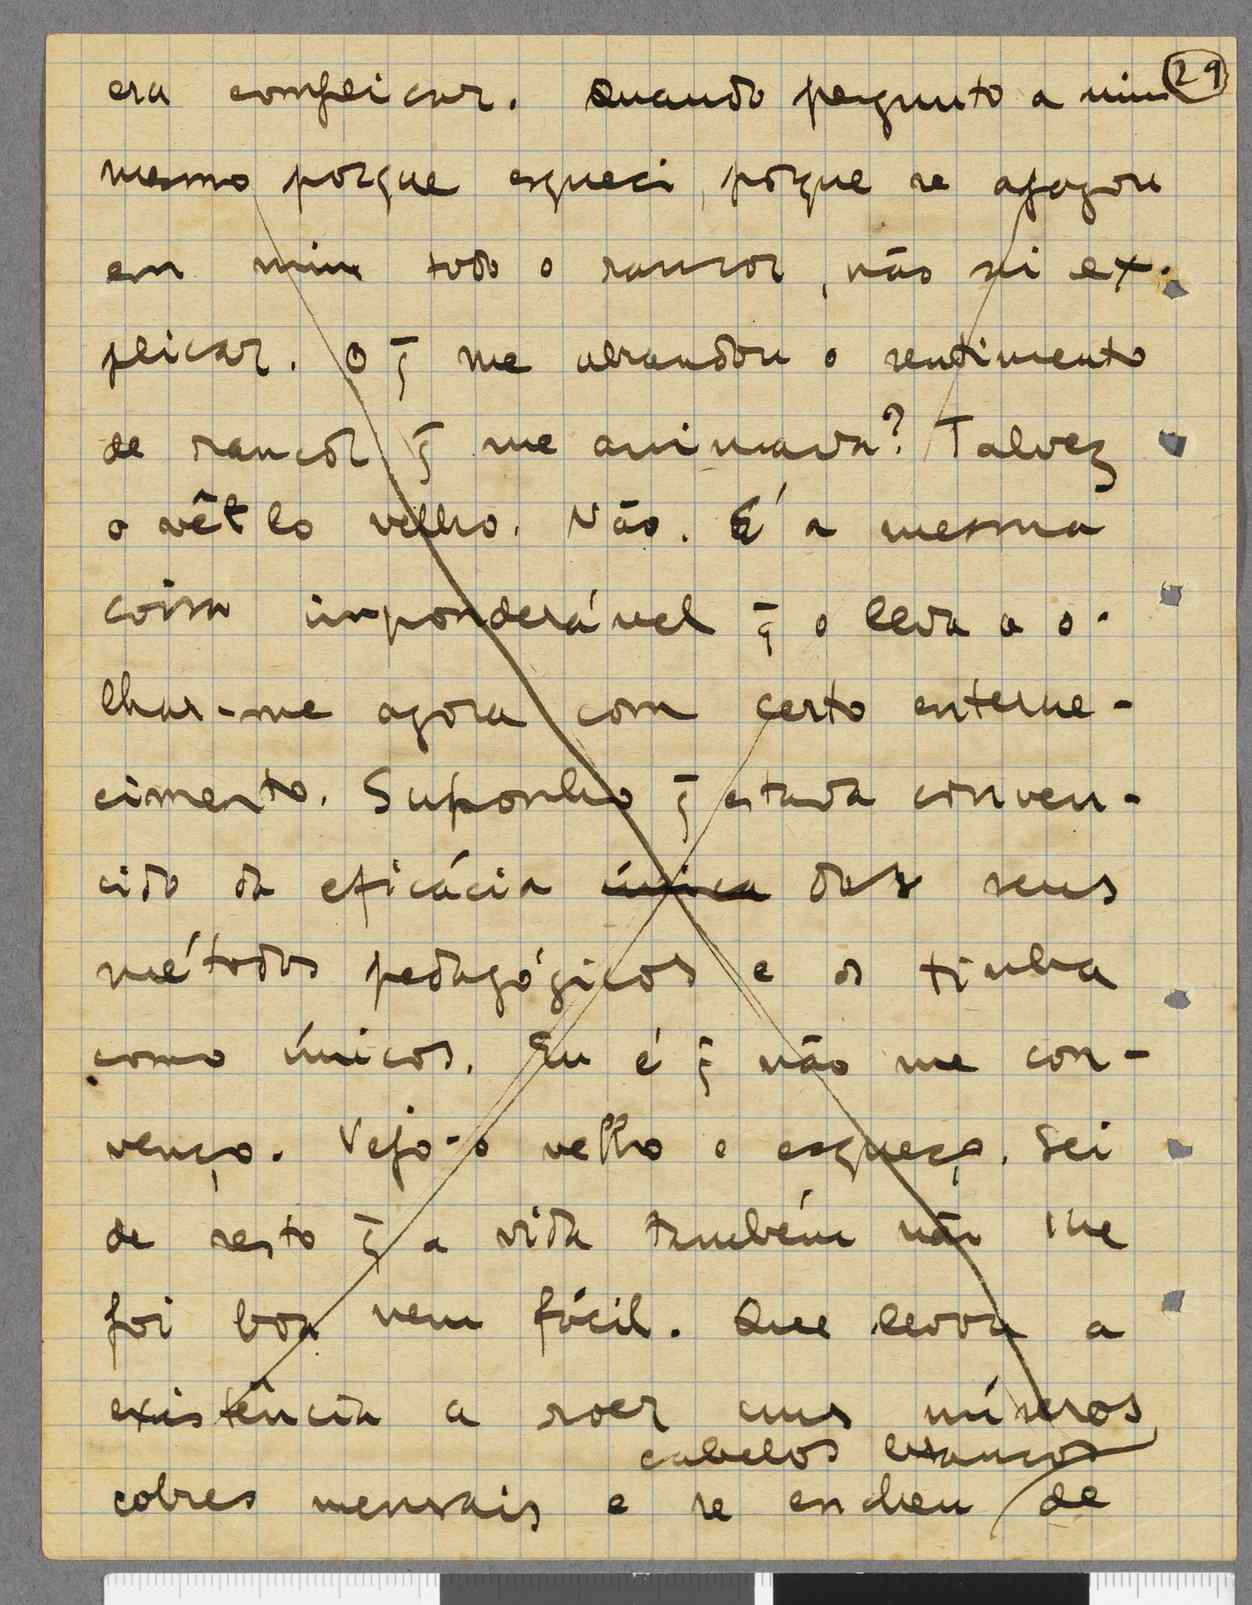 29
era complicar. Quando pergunto a mim
mesmo porque esqueci, porque se apagou
em mim todo o rancor, não sei ex-
plicar. O q̄ me abrandou o sentimento
de rancor q̄ me animava? Talvez
o vêl-lo velho. Não. É a mesma
coisa imponderável q̄ o leva a o-
lhar-me agora com certo enterne-
cimento. Suponho q̄ estava conven-
cido da eficácia única dos seus
métodos pedagógicos e os tinha
como únicos. Eu é q̄ não me con-
venço. Vejo-o velho e esqueço. Sei
de resto q̄ a vida também não lhe
foi boa nem fácil. Que levou a
existência a roer uns míseros
cabelos brancos
cobres mensais e se encheu de